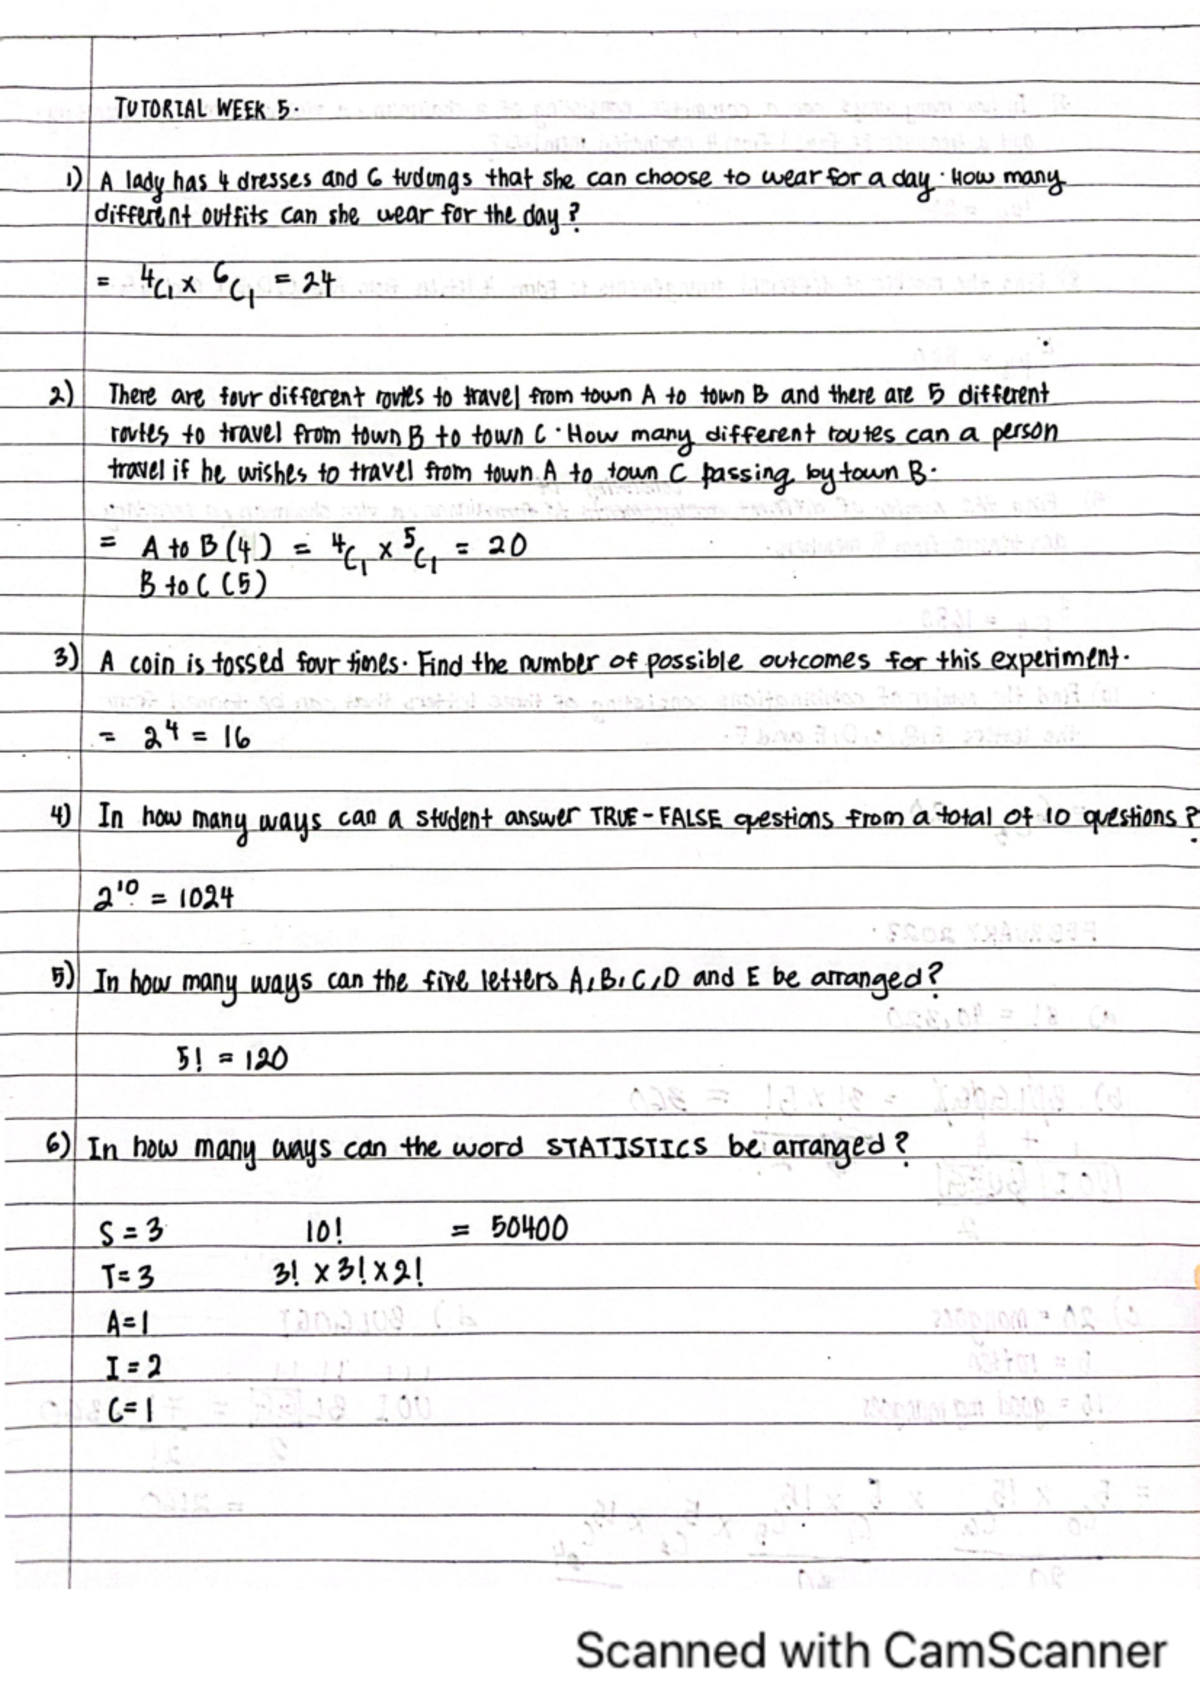 TUTORIAL WEEK 5.
1) A lady has 4 dresses and 6 tudungs that she can choose to wear for a day. How many
different outfits can she wear for the day?
= ⁴C₁ x ⁶C₁ = 24
2) There are four different routes to travel from town A to town B and there are 5 different
routes to travel from town B to town C. How many different routes can a person
travel if he wishes to travel from town A to town C passing by town B.
= A to B (4) = ⁴C₁ x ⁵C₁ = 20
B to C (5)
3) A coin is tossed four times. Find the number of possible outcomes for this experiment.
= 2⁴ = 16
4) In how many ways can a student answer TRUE-FALSE questions from a total of 10 questions?
2¹⁰ = 1024
5) In how many ways can the five letters A, B, C, D and E be arranged?
5! = 120
6) In how many ways can the word STATISTICS be arranged?
S = 3 10! = 50400
T = 3 3! x 3! x 2!
A = 1
I = 2
C = 1
Scanned with CamScanner